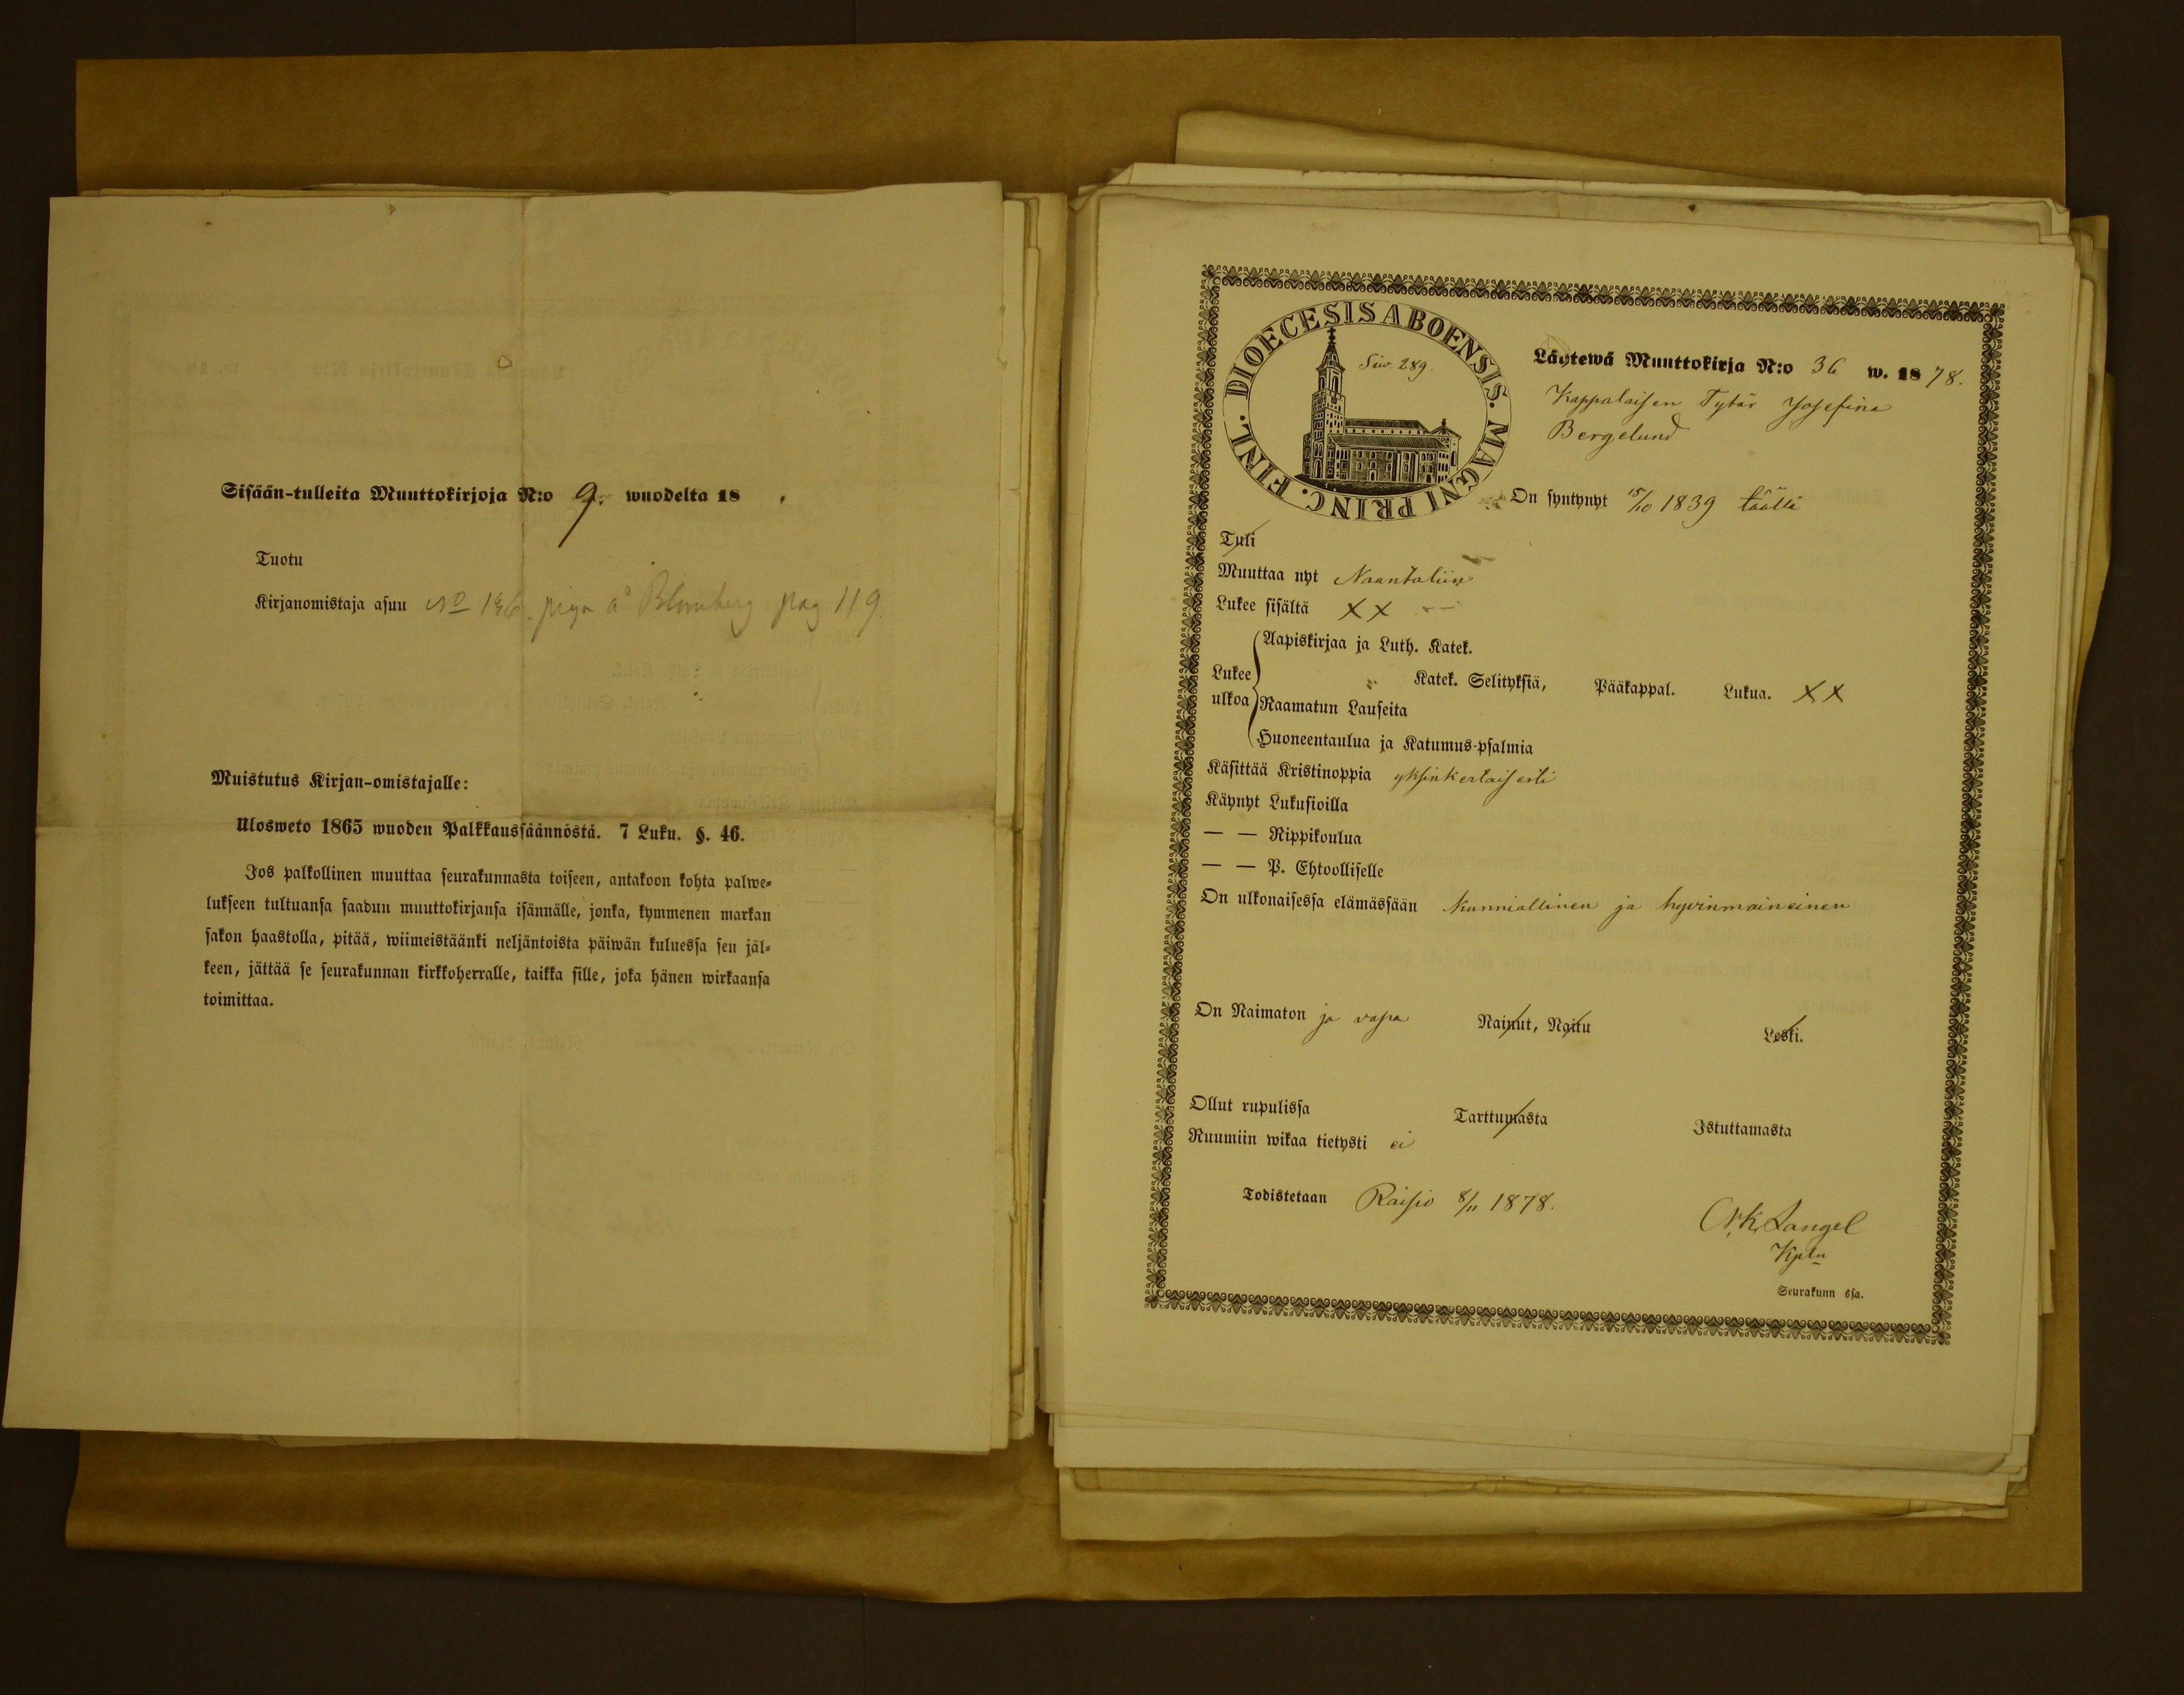 Sisään-tulleita Muuttokirjoja N:o 9. wuodelta 18 .
Tuotu
Kirjanomistaja asuu No 136. piga å Blomberg pag 119.
Muistutus Kirjan-omistajalle:
Ulosweto 1865 wuoden Palkkaussäännöstä. 7 Luku. §. 46.
Jos palkollinen muuttaa seurakunnasta toiseen, antakoon kohta palwe-
lukseen tultuansa saadun muuttokirjansa isännälle, jonka, kymmenen markan
sakon haastolla, pitää, wiimeistäänki neljäntoista päiwän kuluessa sen jäl-
keen, jättää se seurakunnan kirkkoherralle, taikka sille, joka hänen wirkaansa
toimittaa.
DIOECESIS ABOENSIS. MAGNI PRINC. FINL.
Siw. 289.
Läytewä Muuttokirja N:o 36 w. 1878.
Kappalaisen Tytär Josefina
Bergelund
On syntynyt 15/10 1839 täällä
Tuli
Muuttaa nyt Naantaliin
Lukee sisältä XX
Lukee ulkoa
Aapiskirjaa ja Luth. Katek.
Katek. Selityksiä, Pääkappal. Lukua. XX
Raamatun Lauseita
Huoneentaulua ja Katumus-psalmia
Käsittää Kristinoppia yksinkertaisesti
Käynyt Lukusioilla
— — Rippikoulua
— — P. Ehtoolliselle
On ulkonaisessa elämässään kunniallinen ja hyvinmaineinen
On Naimaton ja vapa Nainut, Naitu Leski.
Ollut rupulissa Tarttumasta Istuttamasta
Ruumiin wikaa tietysti ei
Todistetaan Raisio 8/11 1878.
Langel
Kpln
Seurakunn ssa.